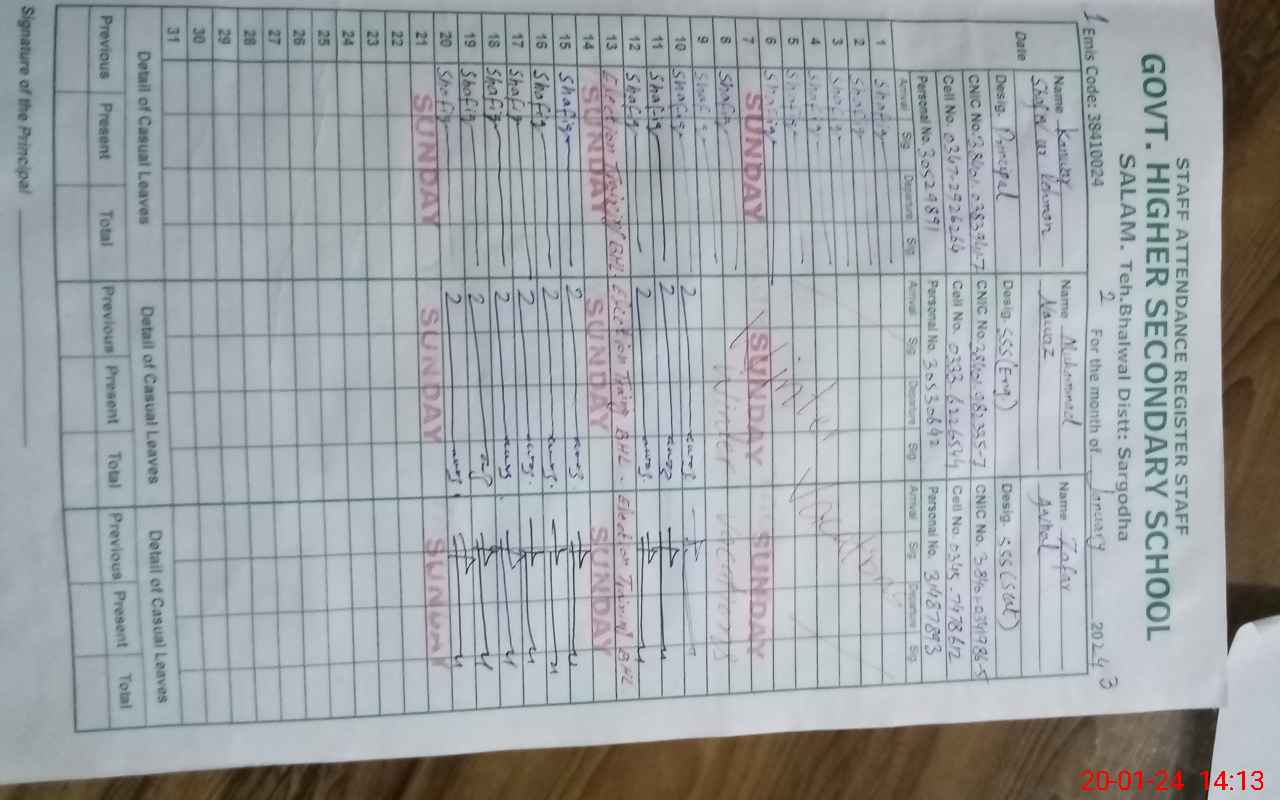 STAFF ATTENDANCE REGISTER STAFF
GOVT. HIGHER SECONDARY SCHOOL
SALAM. Teh.Bhalwal Distt: Sargodha
1 Emis Code: 38410024 2 For the month of January 2024 3
Name Kanwar Name Muhammad Name Zafar
Shafiq ur Rehman Nawaz Iqbal
Date Desig. Principal Desig. SSS(Eng.) Desig. SSS(Stat)
CNIC No. CNIC No. CNIC No.
Cell No. 0347-2926264 Cell No. 0333 6226544 Cell No. 0345-7478612
Personal No. 30529891 Personal No. 30530642 Personal No. 31487893
Arrival Sig Departure Sig Arrival Sig Departure Sig Arrival Sig Departure Sig
1 Shafiq
2 Shafiq
3 Shafiq
4 Shafiq
5 Shafiq
6 Shafiq
7 SUNDAY SUNDAY SUNDAY
8 Shafiq Winter Vacations
9 Shafiq
10 Shafiq 2
11 Shafiq 2
12 Shafiq 2
13 Election Training BHL Election Training BHL. Election Training BHL
14 SUNDAY SUNDAY SUNDAY
15 Shafiq 2
16 Shafiq 2
17 Shafiq 2
18 Shafiq 2
19 Shafiq 2
20 Shafiq 2
21 SUNDAY SUNDAY SUNDAY
22
23
24
25
26
27
28
29
30
31
Detail of Casual Leaves Detail of Casual Leaves Detail of Casual Leaves
Previous Present Total Previous Present Total Previous Present Total
Signature of the Principal
20-01-24 14:13